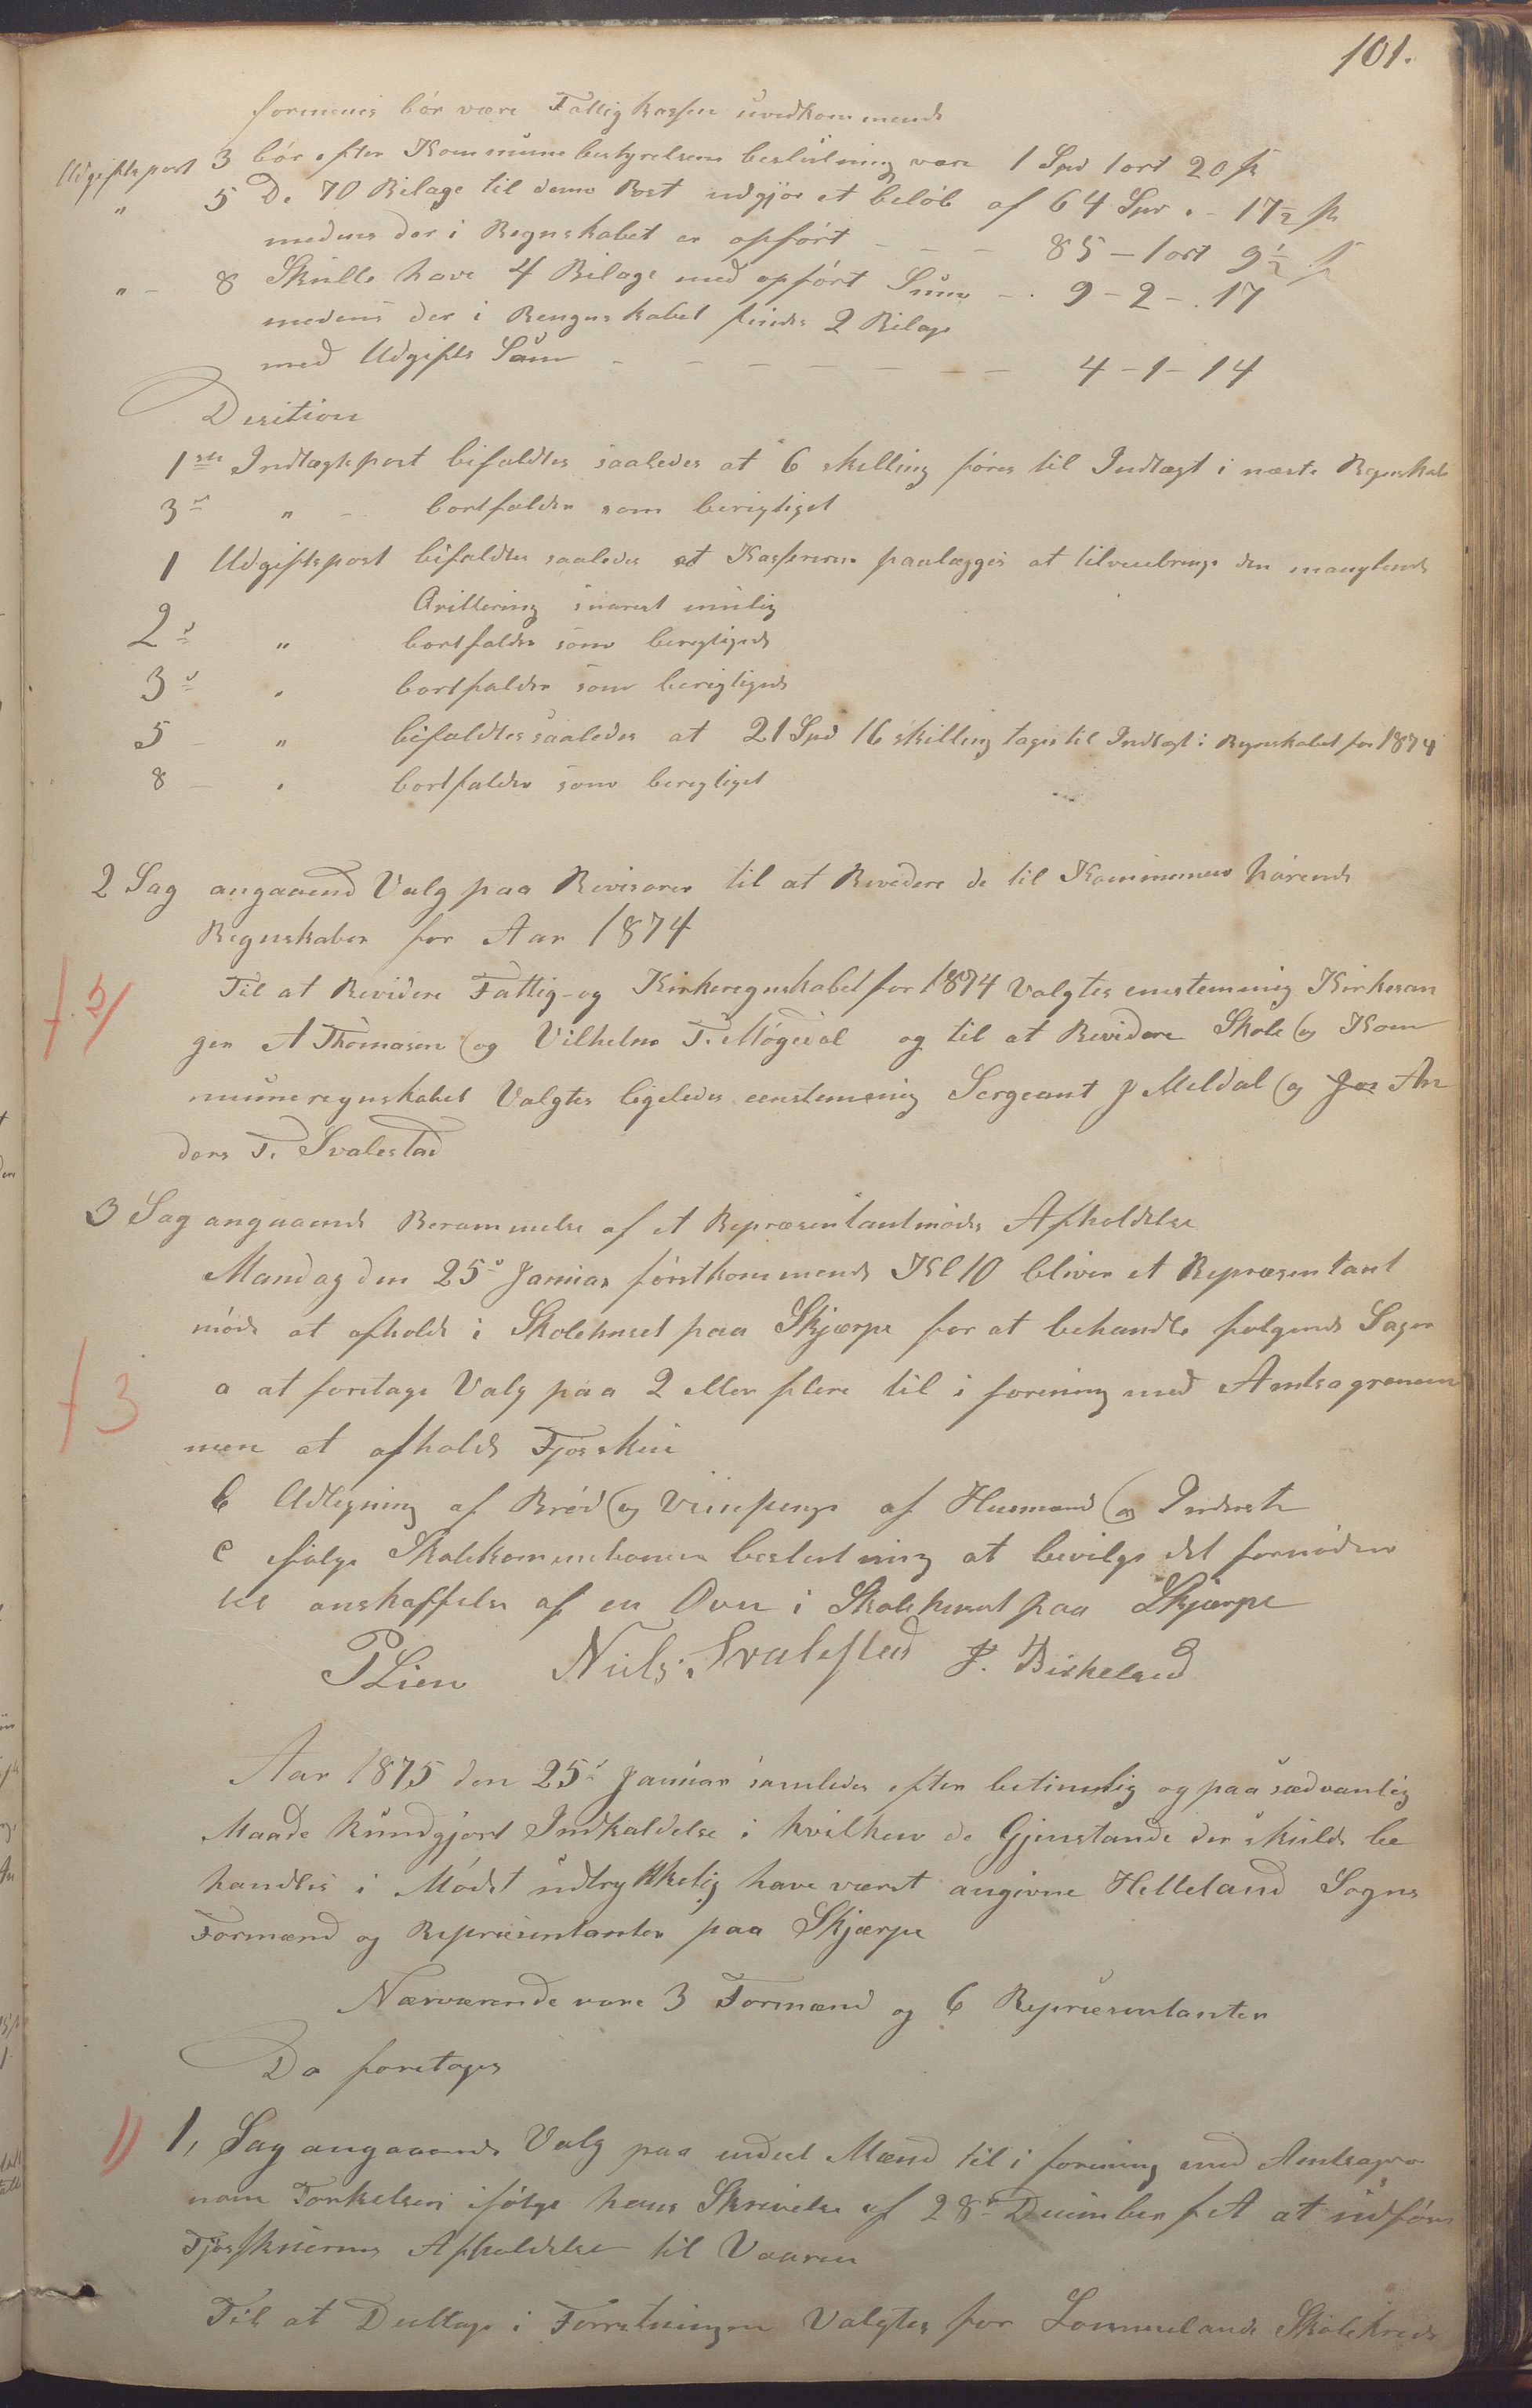 101.
formenes bør være Fattigkassen uvedkommende
Udgiftspost 3 bør efter Kommunebestyrelsens beslutning være 1 Spd 1 ort 20 ß
" 5 De 70 Bilage til denne Post udgjør et beløb af 64 Spd " - 17½ ß
medens der i Regnskabet er opført - - - 85 - 1 ort 9½ ß
" - 8 Skulle have 4 Bilage med opført Sum - . 9 - 2 - . 17
medens der i Rengnskabet findes 2 Bilage
med Udgifts Sum - - - - - - - 4 - 1 - 14
Desition
1ste Indtægtspost bifaldtes saaledes at 6 skilling føres til Indtægt i næste Regnskab
3die " - bortfalder som berigtiget
1 Udgiftspost bifaldtes saaledes at Kassereren paalægges at tilveiebringe den manglende
Qvittering snarest mulig
2d " bortfalder som berigtigede
3d " bortfalder som berigtigede
5 - " bifaldtes saaledes at 21 Spd 16 skilling tages til Indtægt i Regnskabet for 1874
8 - " bortfalder som berigtiget
2 Sag angaaende Valg paa Revisorer til at Revedere de til Kommunen hørende
Regnskaber for Aar 1874
† 2/ Til at Revidere Fattig- og Kirkeregnskabet for 1874 Valgtes enstemmig Kirkesan
ger A Thomasen og Vilhelm T. Møgedal og til at Revidere Skole og Kom
muneregnskabet Valgtes ligeledes eenstemmig Sergeant J Meldal og An
ders T. Svalestad
3 Sag angaaende Berammelse af et Repræsentantmødes Afholdelse
Mandag den 25de Januar førstkommende Kl 10 bliver et Repræsentant
møde at afholde i Skolehuset paa Skjærpe for at behandle følgende Sager
† 3 a at foretage Valg paa 2 eller flere til i forening med Amtsagronom
men at afholde Fjosskue
b Udligning af Brød og Viinpenge af Husmænd og Inderste
c ifølge Skolekommisionens beslutning at bevilge det fornødne
til anskaffelse af en Ovn i Skolehuset paa Skjærpe
P Lien Niels Svalestad J. Birkeland
Aar 1875 den 25de Januar samledes efter betimelig og paa sædvanlig
Maade kundgjort Indkaldelse i hvilken de Gjenstande der skulde be
handles i Mødet udtrykkelig have været angivne Helleland Sogns
Formænd og Repræsentanter paa Skjærpe
Nærværende vare 3 Formænd og 6 Repræsentanter
Da foretoges
1) 1, Sag angaaende Valg paa endeel Mænd til i forening med Amtsagro
nom Torkelsen ifølge hans Skrivelse af 28de December f A at udføre
Fjosskuernes Afholdelse til Vaaren
Til at Deeltage i Forretningen Valgtes for Lommelands Skolekreds